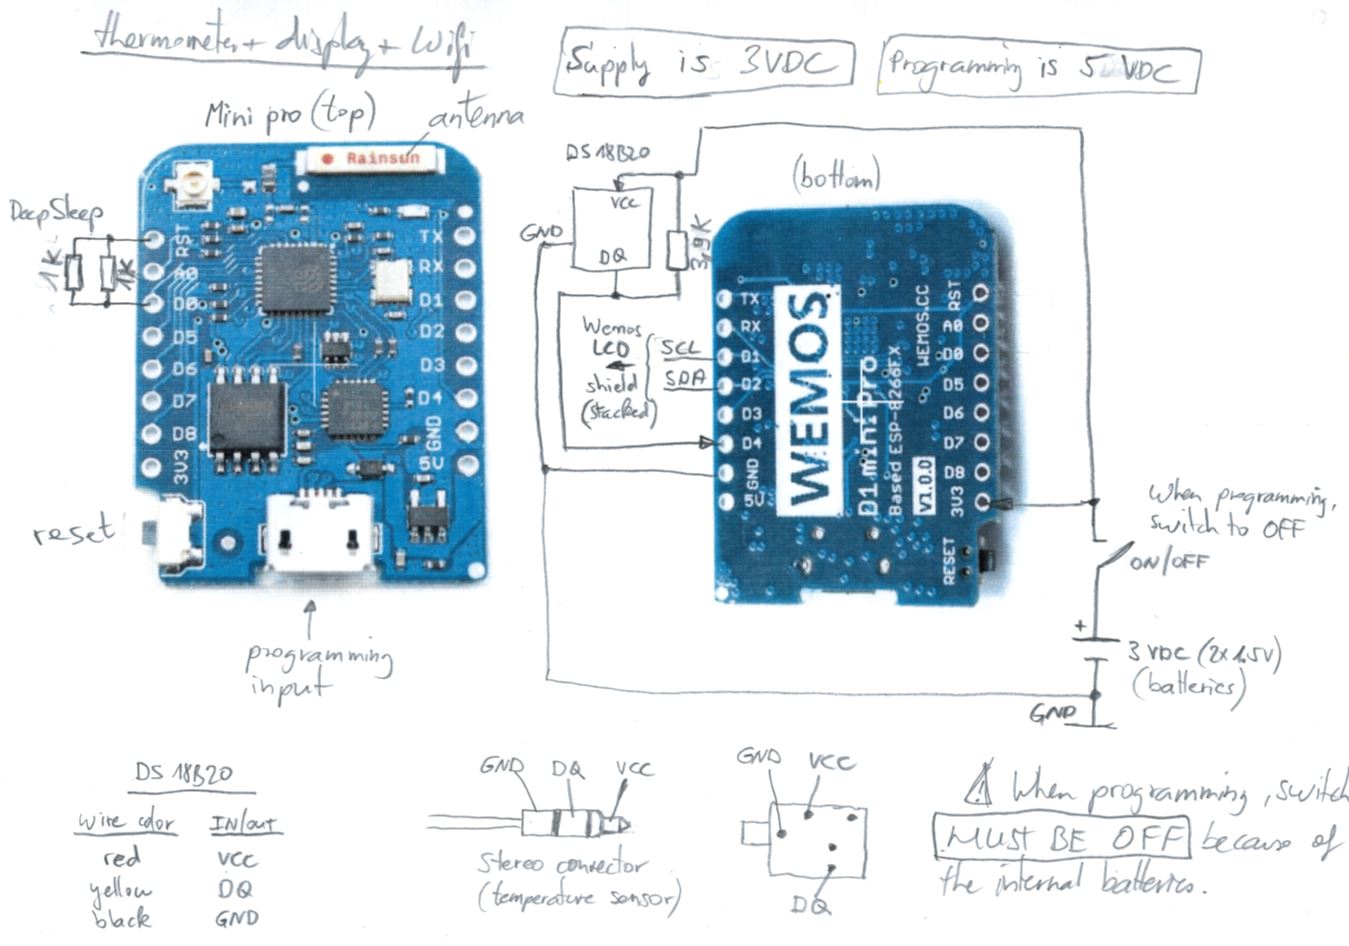 thermometer + display + Wifi
Supply is 3VDC
Programming is 5 VDC
Mini pro (top)
antenna
Rainsun
DeepSleep
1K
1K
RST
A0
D0
D5
D6
D7
D8
3V3
TX
RX
D1
D2
D3
D4
GND
5V
reset
programming
input
DS18B20
VCC
GND
DQ
3,9K
(bottom)
Wemos
LCD
shield
(stacked)
SCL
SDA
TX
RX
D1
D2
D3
D4
GND
5V
WEMOS
D1 mini Pro
Based ESP-8266EX
WEMOS.CC
V1.0.0
RST
A0
D0
D5
D6
D7
D8
3V3
RESET
When programming,
switch to OFF
ON/OFF
+
3 VDC (2x1.5V)
(batteries)
GND
DS 18B20
wire color IN/out
red VCC
yellow DQ
black GND
GND DQ VCC
Stereo connector
(temperature sensor)
GND VCC
DQ
⚠ When programming, switch
MUST BE OFF because of
the internal batteries.